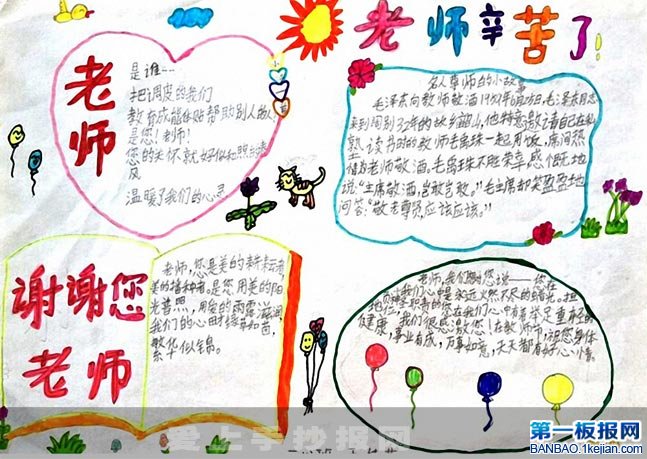 老师辛苦了!
老师
是谁---
把调皮的我们
教育成能体贴帮助别人的人
是您!老师!
您的关怀就好似和煦的春
风
温暖了我们的心灵
名人尊师的小故事
毛泽东向教师敬酒1959年6月25日,毛泽东同志
来到阔别32年的故乡韶山,他特意邀请自己在私
塾读书时的教师毛禹珠一起用饭,席间热
情为老师敬酒。毛禹珠不胜荣幸,感慨地
说:“主席敬酒,岂敢岂敢。”毛主席却笑盈盈地
回答:“敬老尊贤,应该应该。”
谢谢您
老师
老师,您是美的耕耘者,
美的播种者。是您用美的阳
光普照,用美的雨露滋润
我们的心田才绿草如茵,
繁华似锦。
老师,我们赐您说——您在
我们心中是永远火燃不尽的蜡光。
健康,我们很感激您!在教师节,祝您身体
事业有成,万事如意,天天都有好心情。
爱上手抄报网
第一板报网
BANBAO.1kejian.com